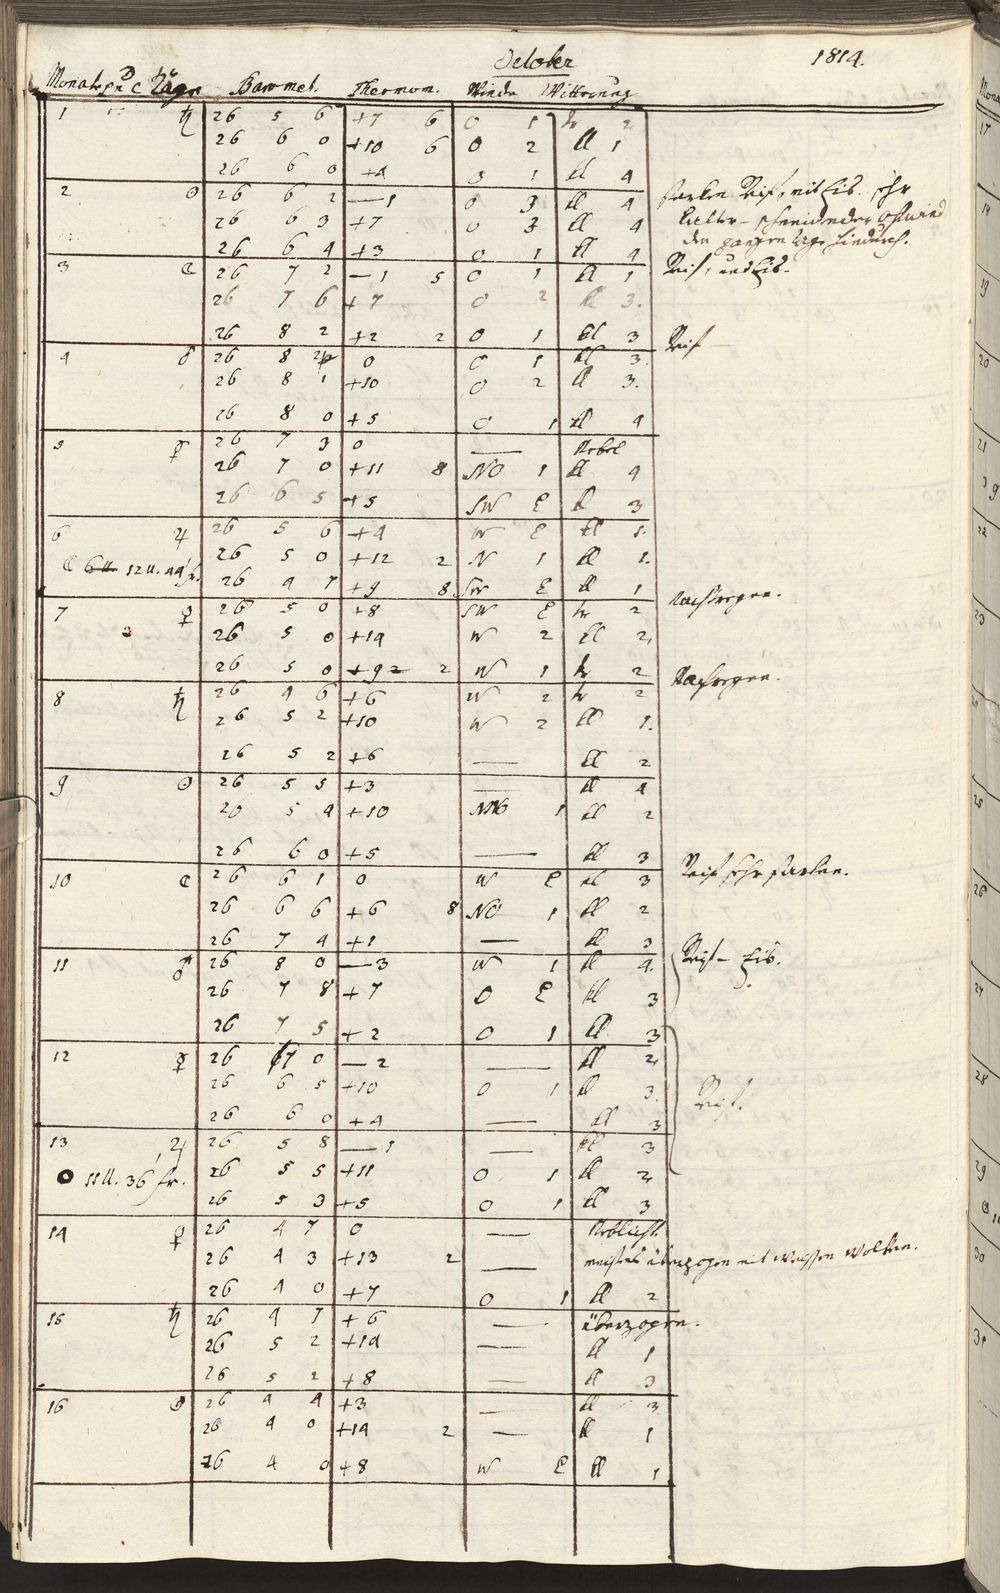 October 1814.
Monats Täge Baromet. Thermom. Winde Witterung
1 ♄ 26 5 6 +7 6 O 1 tr 2
26 6 0 +10 6 O 2 kl 1
26 6 0 +4 O 1 kl 4
2 ☉ 26 6 2 —1 O 3 kl 4 starken Reif, mit Eis. sehr
26 6 3 +7 O 3 kl 4 kalter schneidender Ostwind
26 6 4 +3 O 1 kl 4 den ganzen Tag hindurch.
3 ☾ 26 7 2 —1 5 O 1 kl 1 Reif, und Eis.
26 7 6 +7 O 2 kl 3.
26 8 2 +2 2 O 1 kl 3 Reif
4 ♂ 26 8 2 0 O 1 kl 3.
26 8 1 +10 O 2 kl 3.
26 8 0 +5 O 1 kl 4
5 ☿ 26 7 3 0 — Nebel
26 7 0 +11 8 NO 1 kl 4
26 6 5 +5 SW E kl 3
6 ♃ 26 5 6 +4 W E kl 1.
26 5 0 +12 2 N 1 kl 1.
☾ 12 U. 44 fr. 26 4 7 +9 8 SW E kl 1
7 ♀ 26 5 0 +8 SW E tr 2 Nachtregen.
26 5 0 +14 W 2 kl 2
26 5 0 +9 2 W 1 tr 2
8 ♄ 26 4 6 +6 W 2 tr 2 Nachtregen.
26 5 2 +10 W 2 kl 1.
26 5 2 +6 — kl 2
9 ☉ 26 5 5 +3 — kl 4
26 5 4 +10 NNO 1 kl 2
26 6 0 +5 — kl 3
10 ☾ 26 6 1 0 W E kl 3 Reif sehr starken.
26 6 6 +6 8 NO 1 kl 2
26 7 4 +1 — kl 3
11 ♂ 26 8 0 —3 W 1 kl 4 Reif – Eis.
26 7 8 +7 O E kl 3
26 7 5 +2 O 1 kl 3
12 ☿ 26 7 0 —2 — kl 2
26 6 5 +10 O 1 kl 3. Reif.
26 6 0 +4 — kl 3
13 ♃ 26 5 8 —1 — kl 3
O 11 U. 36 fr. 26 5 5 +11 O 1 kl 2
26 5 3 +5 O 1 kl 3
14 ♀ 26 4 7 0 — Neblicht.
26 4 3 +13 2 — meistens überzogen mit weissen Wolken.
26 4 0 +7 O 1 kl 2
15 ♄ 26 4 7 +6 — überzogen.
26 5 2 +14 — kl 1
26 5 2 +8 — kl 3
16 ☉ 26 4 4 +3 — kl 3
26 4 0 +14 2 — kl 1
26 4 0 +8 W E kl 1